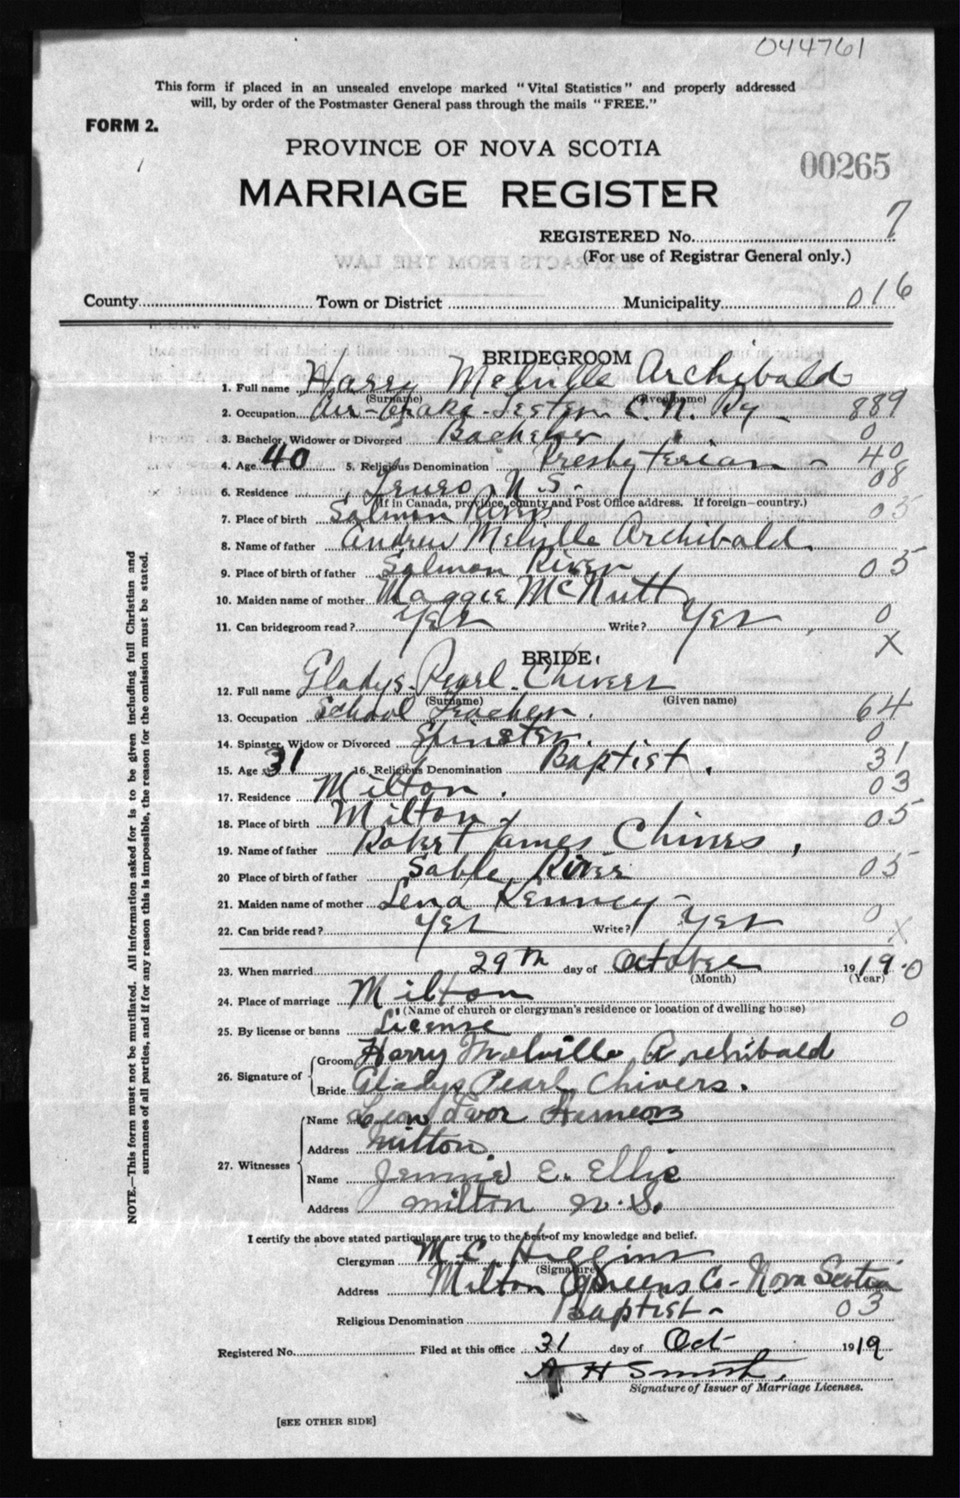 044761
This form if placed in an unsealed envelope marked "Vital Statistics" and properly addressed
will, by order of the Postmaster General pass through the mails "FREE."
FORM 2.
PROVINCE OF NOVA SCOTIA
00265
MARRIAGE REGISTER
REGISTERED No. 7
(For use of Registrar General only.)
EXTRACTS FROM THE LAW
County Town or District Municipality 016
BRIDEGROOM
1. Full name Harry Melville Archibald
(Surname) (Given name)
2. Occupation Air-Brake-Tester C. N. Ry - 889
3. Bachelor, Widower or Divorced Bachelor 0
4. Age 40 5. Religious Denomination Presbyterian - 40
6. Residence Truro, N.S. 08
(If in Canada, province, county and Post Office address. If foreign—country.)
7. Place of birth Salmon River 05
8. Name of father Andrew Melville Archibald.
9. Place of birth of father Salmon River 05
10. Maiden name of mother Maggie McNutt
11. Can bridegroom read? Yes Write? Yes 0
X
BRIDE
12. Full name Gladys Pearl Chivers
(Surname) (Given name)
13. Occupation School Teacher. 64
14. Spinster, Widow or Divorced Spinster. 0
15. Age 31 16. Religious Denomination Baptist. 31
17. Residence Milton. 03
18. Place of birth Milton 05
19. Name of father Robert James Chivers,
20 Place of birth of father Sable River 05
21. Maiden name of mother Lena Kenney -
22. Can bride read? Yes Write? Yes 0
X
23. When married 29th day of October 1919 0
(Month) (Year)
24. Place of marriage Milton
(Name of church or clergyman's residence or location of dwelling house)
25. By license or banns License 0
26. Signature of Groom Harry Melville Archibald
Bride Gladys Pearl Chivers.
27. Witnesses Name
Address Milton.
Name Jennie E. Ellis
Address Milton N.S.
I certify the above stated particulars are true to the best of my knowledge and belief.
Clergyman M C Higgins
(Signature)
Address Milton Queens Co - Nova Scotia
Religious Denomination Baptist - 03
Registered No. Filed at this office 31 day of Oct 1919
A H Smith.
Signature of Issuer of Marriage Licenses.
[SEE OTHER SIDE]
NOTE.—This form must not be mutilated. All information asked for is to be given including full Christian and
surnames of all parties, and if for any reason this is impossible, the reason for the omission must be stated.